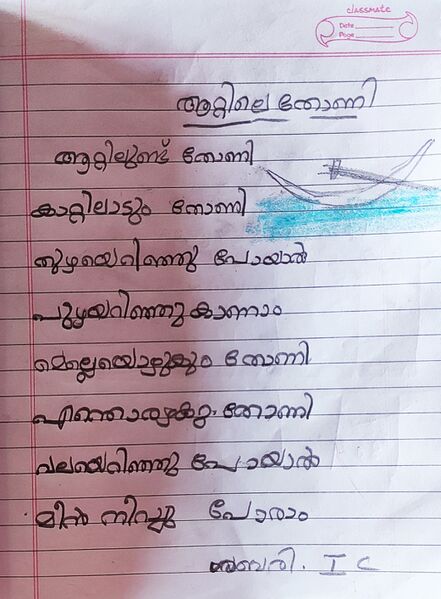 classmate
Date
Page
ആറ്റിലെ തോണി
ആറ്റിലുണ്ട് തോണി
കാറ്റിലാട്ടും തോണി
തുഴയെറിഞ്ഞു പോയാൽ
പുഴയറിഞ്ഞു കാണാം
മെല്ലെയൊഴുകും തോണി
എന്തൊരഴകു തോണി
വലയെറിഞ്ഞു പോയാൽ
മീൻ നിറച്ചു പോരാം
ശബരി. I C